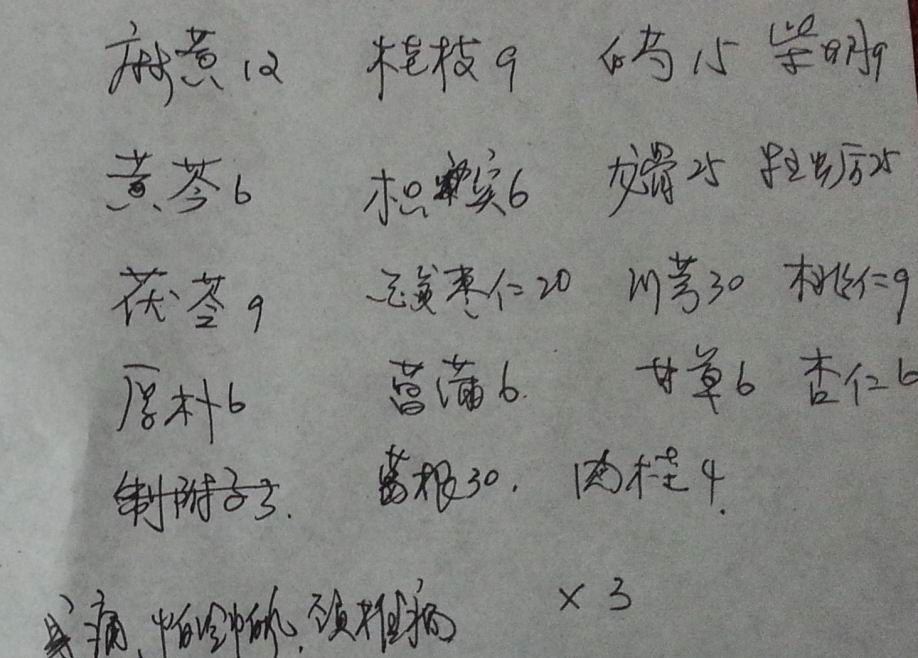 麻黄12 桂枝9 白芍15 柴胡9
黄芩6 枳实6 龙骨25 牡蛎25
茯苓9 酸枣仁20 川芎30 桃仁9
厚朴6 菖蒲6. 甘草6 杏仁6
制附子3. 葛根30. 肉桂4.
身痛、怕冷、怕风、颈椎病 ×3